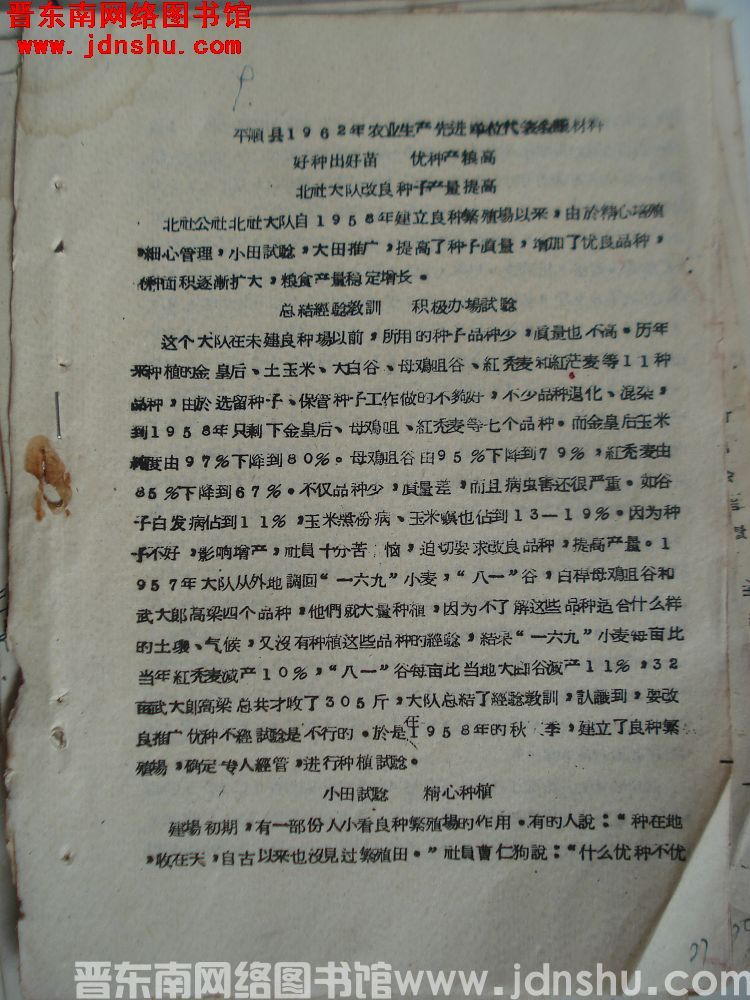 晋东南网络图书馆
www.jdnshu.com
平順县1962年农业生产先进单位代表会議材料
好种出好苗　优种产粮高
北社大队改良种子产量提高
北社公社北社大队自1958年建立良种繁殖場以来，由於精心培殖
，細心管理，小田試驗，大田推广，提高了种子質量，增加了优良品种，
优种面积逐漸扩大，粮食产量穩定增长。
总結經驗教訓　积极办場試驗
这个大队在未建良种場以前，所用的种子品种少，質量也不高。历年
来种植的金皇后、土玉米、大白谷、母鷄咀谷、紅秃麦和紅芒麦等11种
品种，由於选留种子、保管种子工作做的不夠好，不少品种退化、混杂，
到1958年只剩下金皇后、母鷄咀、紅秃麦等七个品种。而金皇后玉米
純度由97%下降到80%。母鷄咀谷由95%下降到79%，紅秃麦由
85%下降到67%。不仅品种少，質量差，而且病虫害还很严重。如谷
子白发病佔到11%，玉米黑份病、玉米螟也佔到13—19%。因为种
子不好，影响增产，社員十分苦 恼，迫切要求改良品种，提高产量。1
957年大队从外地調回“一六九”小麦，“八一”谷，白桿母鷄咀谷和
武大郎高梁四个品种，他們就大量种植，因为不了解这些品种适合什么样
的土壤、气候，又沒有种植这些品种的經驗，結果“一六九”小麦每亩比
当年紅秃麦减产10%，“八一”谷每亩比当地大白谷减产11%，32
亩武大郎高梁总共才收了305斤，大队总結了經驗教訓，认識到，要改
良推广优种不經試驗是不行的。於是在1958年的秋 季，建立了良种繁
殖場，确定专人經管，进行种植試驗。
小田試驗　精心种植
建場初期，有一部份人小看良种繁殖場的作用。有的人說：“种在地
，收在天，自古以来也沒見过繁殖田。”社員曹仁狗說：“什么优种不优
27
晋东南网络图书馆www.jdnshu.com